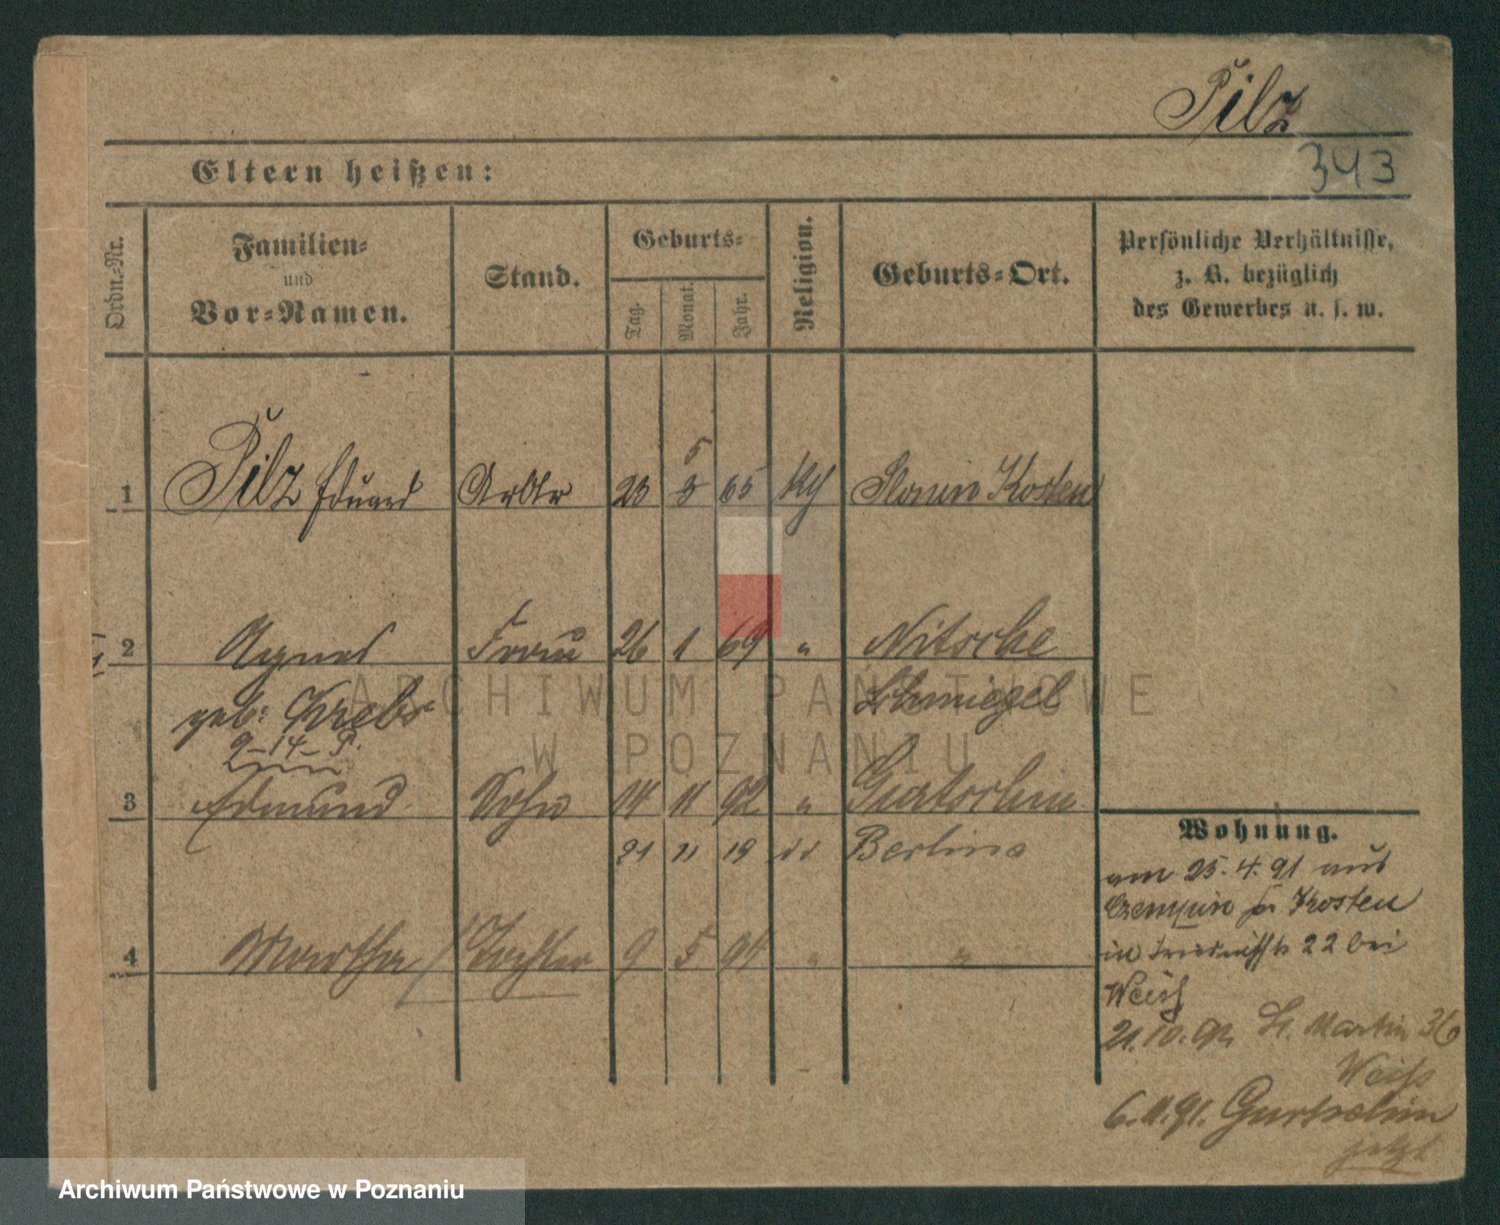 Pilz
343
Eltern heißen:
Ordn.-Nr.
Familien- und Vor-Namen.
Stand.
Geburts-
Tag. Monat. Jahr.
Religion.
Geburts-Ort.
Persönliche Verhältnisse, z. B. bezüglich des Gewerbes u. s. w.
1 Pilz Eduard Arbtr 23 5 65 Kosten
2 Agnes Frau 26 1 69 " Nitsche
geb: Krebs Schmiegel
9-14-P.
3 Edmund Sohn 14 11 92 " Gurtschin
21 11 19 Berlin
Wohnung.
am 25.4.91 aus
Czempin Kr Kosten
in 22 bei
Weiß
4 Martha Tochter 9 5 "
21.10. St. Martin 36
Weiß
6.11.91. Gurtschin
jetzt
ARCHIWUM PAŃSTWOWE
W POZNANIU
Archiwum Państwowe w Poznaniu